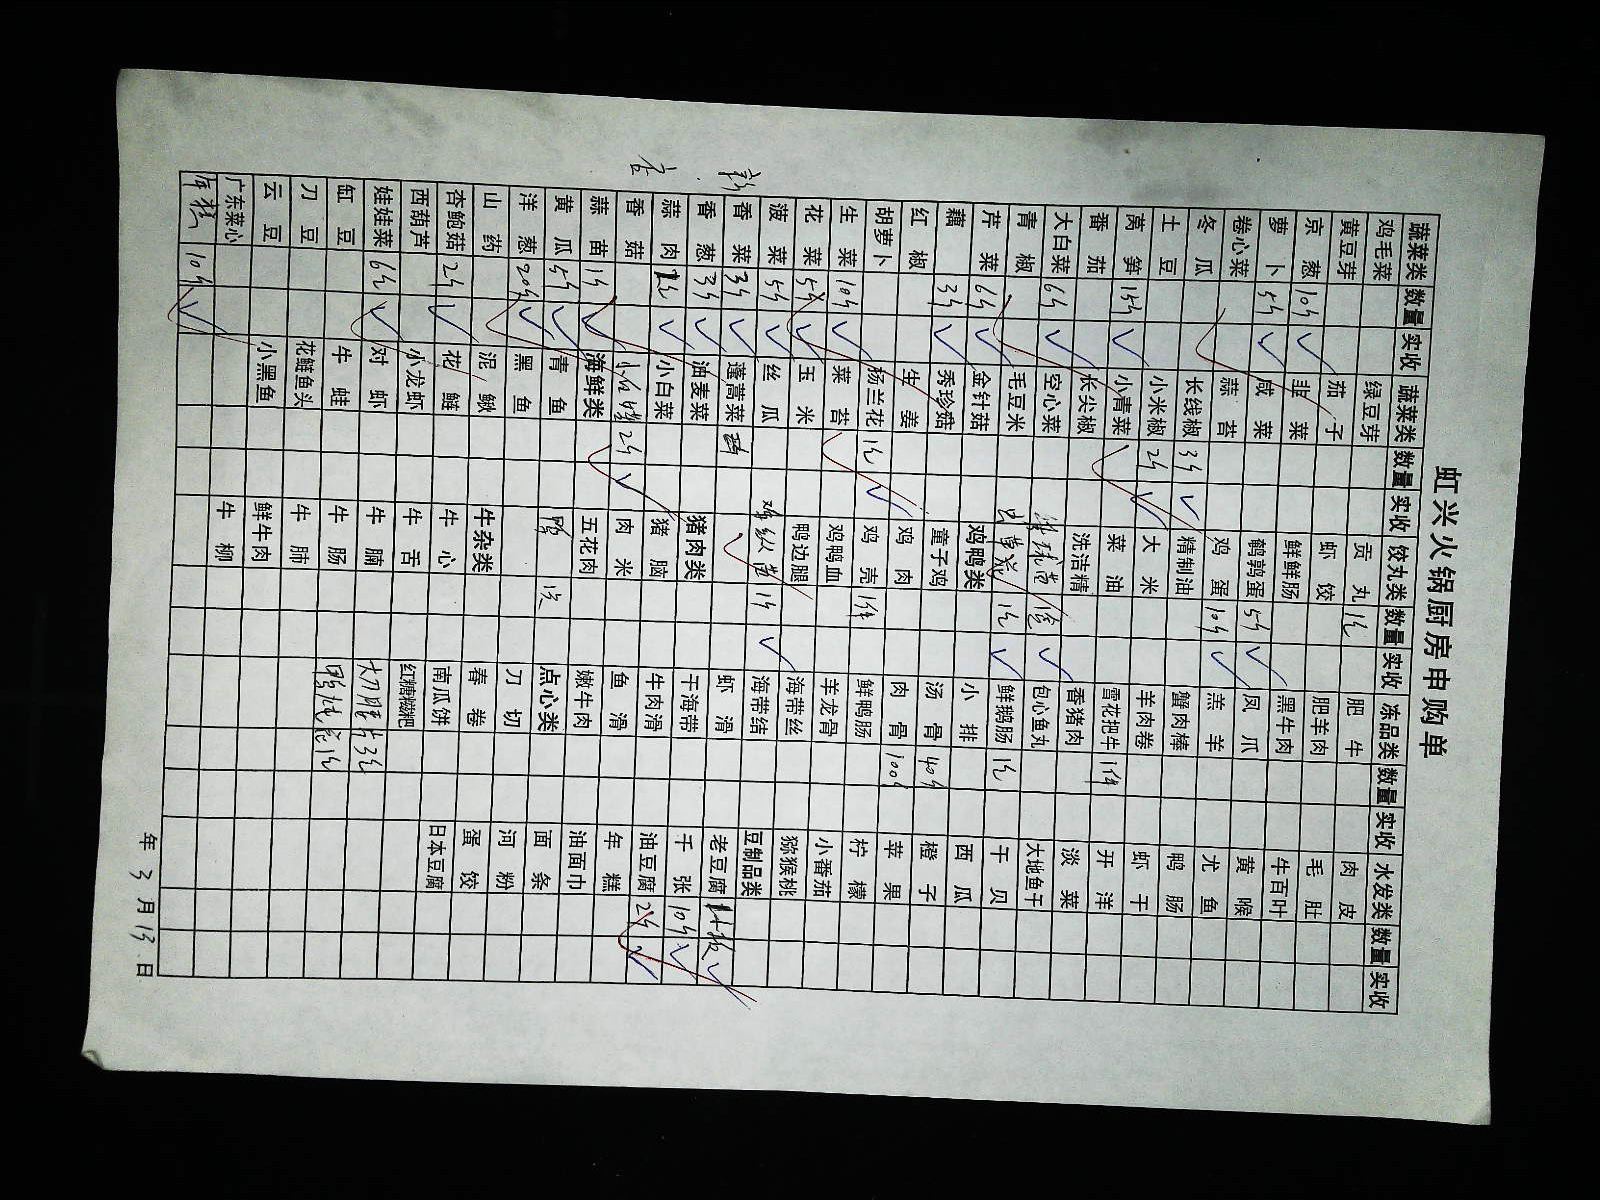 虹兴火锅厨房申购单
蔬菜类 数量 实收 蔬菜类 数量 实收 饺丸类 数量 实收 冻品类 数量 实收 水发类 数量 实收
鸡毛菜 绿豆芽 贡丸 1包 肥牛 肉皮
黄豆芽 茄子 虾饺 肥羊肉 毛肚
京葱 10斤 韭菜 鲜鲜肠 黑牛肉 牛百叶
萝卜 5斤 咸菜 鹌鹑蛋 5斤 凤爪 黄喉
卷心菜 蒜苔 鸡蛋 10斤 羔羊 尤鱼
冬瓜 长线椒 3斤 精制油 蟹肉棒 鸭肠
土豆 小米椒 2斤 大米 羊肉卷 虾干
莴笋 15斤 小青菜 菜油 雪花把牛 1件 开洋
番茄 长尖椒 洗洁精 香猪肉 淡菜
大白菜 6斤 空心菜 1包 包心鱼丸 大地鱼干
青椒 毛豆米 虫草花 1包 鲜鹅肠 1包 干贝
芹菜 6斤 金针菇 鸡鸭类 小排 西瓜
藕 3斤 秀珍菇 童子鸡 汤骨 40斤 橙子
红椒 生姜 鸡肉 肉骨 100斤 苹果
胡萝卜 杨兰花 1包 鸡壳 1件 鲜鸭肠 柠檬
生菜 10斤 菜苔 鸡鸭血 羊龙骨 小番茄
花菜 5斤 玉米 鸭边腿 海带丝 猕猴桃
菠菜 5斤 丝瓜 鸡纵菌 1斤 海带结 豆制品类
香菜 3斤 蓬蒿菜 虾滑 老豆腐 1板
香葱 3斤 油麦菜 猪肉类 干海带 千张 10斤
蒜肉 1包 小白菜 猪脑 牛肉滑 油豆腐 2斤
香菇 2斤 肉米 鱼滑 年糕
蒜苗 1斤 海鲜类 五花肉 嫩牛肉 油面巾
黄瓜 5斤 青鱼 鸭 1只 点心类 面条
洋葱 20斤 黑鱼 刀切 河粉
山药 泥鳅 牛杂类 春卷 蛋饺
杏鲍菇 2斤 花鲢 牛心 南瓜饼 日本豆腐
西葫芦 小龙虾 牛舌 红糖糍粑
娃娃菜 6斤 对虾 牛腩 大刀腰片 3包
缸豆 牛蛙 牛肠 1包
刀豆 花鲢鱼头 牛肺
云豆 小黑鱼 鲜牛肉
广东菜心 牛柳
年糕 10斤
年 3 月 13 日